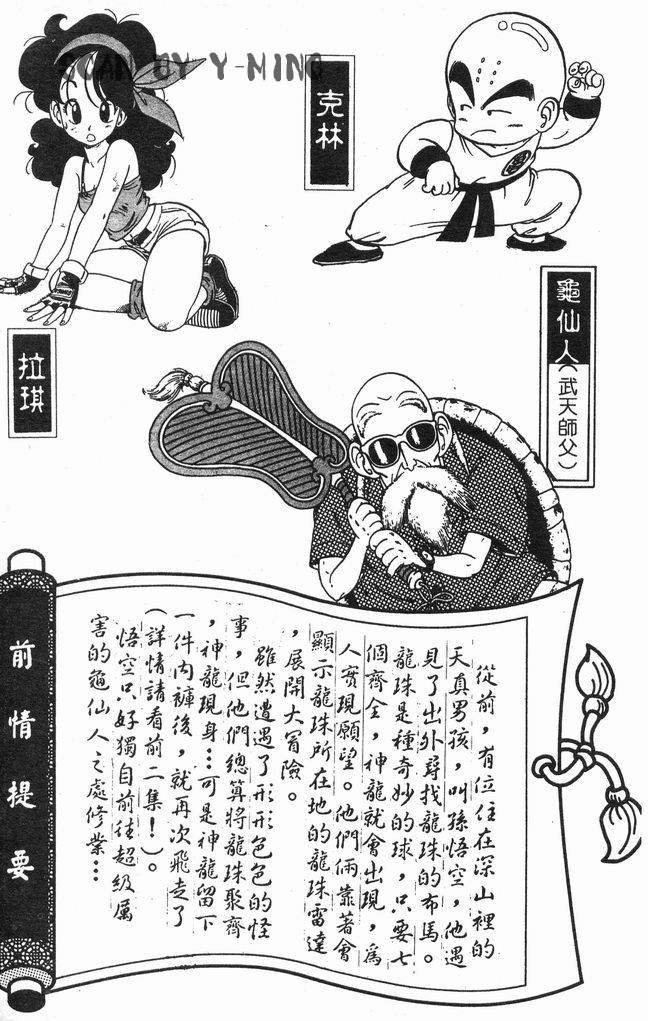 SCAN BY Y-MING
克林
拉琪
龜仙人(武天師父)
前情提要
從前,有位住在深山裡的
天真男孩,叫孫悟空,他遇
見了出外尋找龍珠的布馬。
龍珠是種奇妙的球,只要七
個齊全,神龍就會出現,為
人實現願望。他們倆靠著會
顯示龍珠所在地的龍珠雷達
,展開大冒險。
雖然遭遇了形形色色的怪
事,但他們總算將龍珠聚齊
,神龍現身…可是神龍留下
一件內褲後,就再次飛走了
(詳情請看前二集!)。
悟空只好獨自前往超級厲
害的龜仙人之處修業…